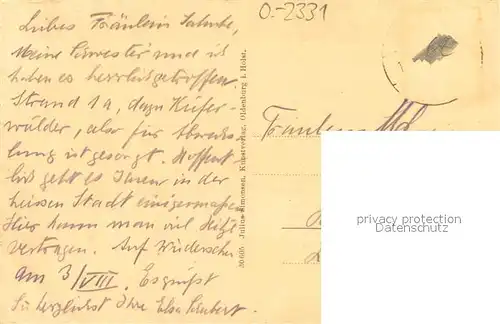 O.-2331
Liebes Fräulein
Meine Schwester und ich
haben es herrlich getroffen.
Strand 1a, dazu Kiefer-
wälder, also für Abwechs-
lung ist gesorgt. Hoffent-
lich geht es Ihnen in der
heissen Stadt einigermaßen
Hier kann man viel Hitze
vertragen. Auf Wiedersehn
am 3/VIII. Es grüßt
Sie herzlichst Ihre Elsa Schubert.
30605 Julius Simonsen, Kunstverlag, Oldenburg i. Holst.
Fräulein
privacy protection
Datenschutz